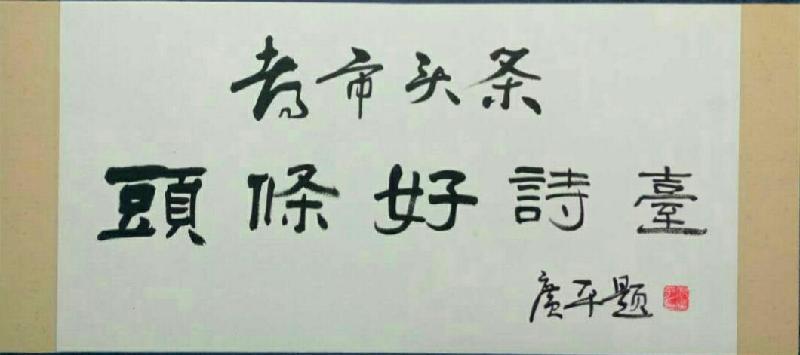 都市头条
頭條好詩臺
廣平题